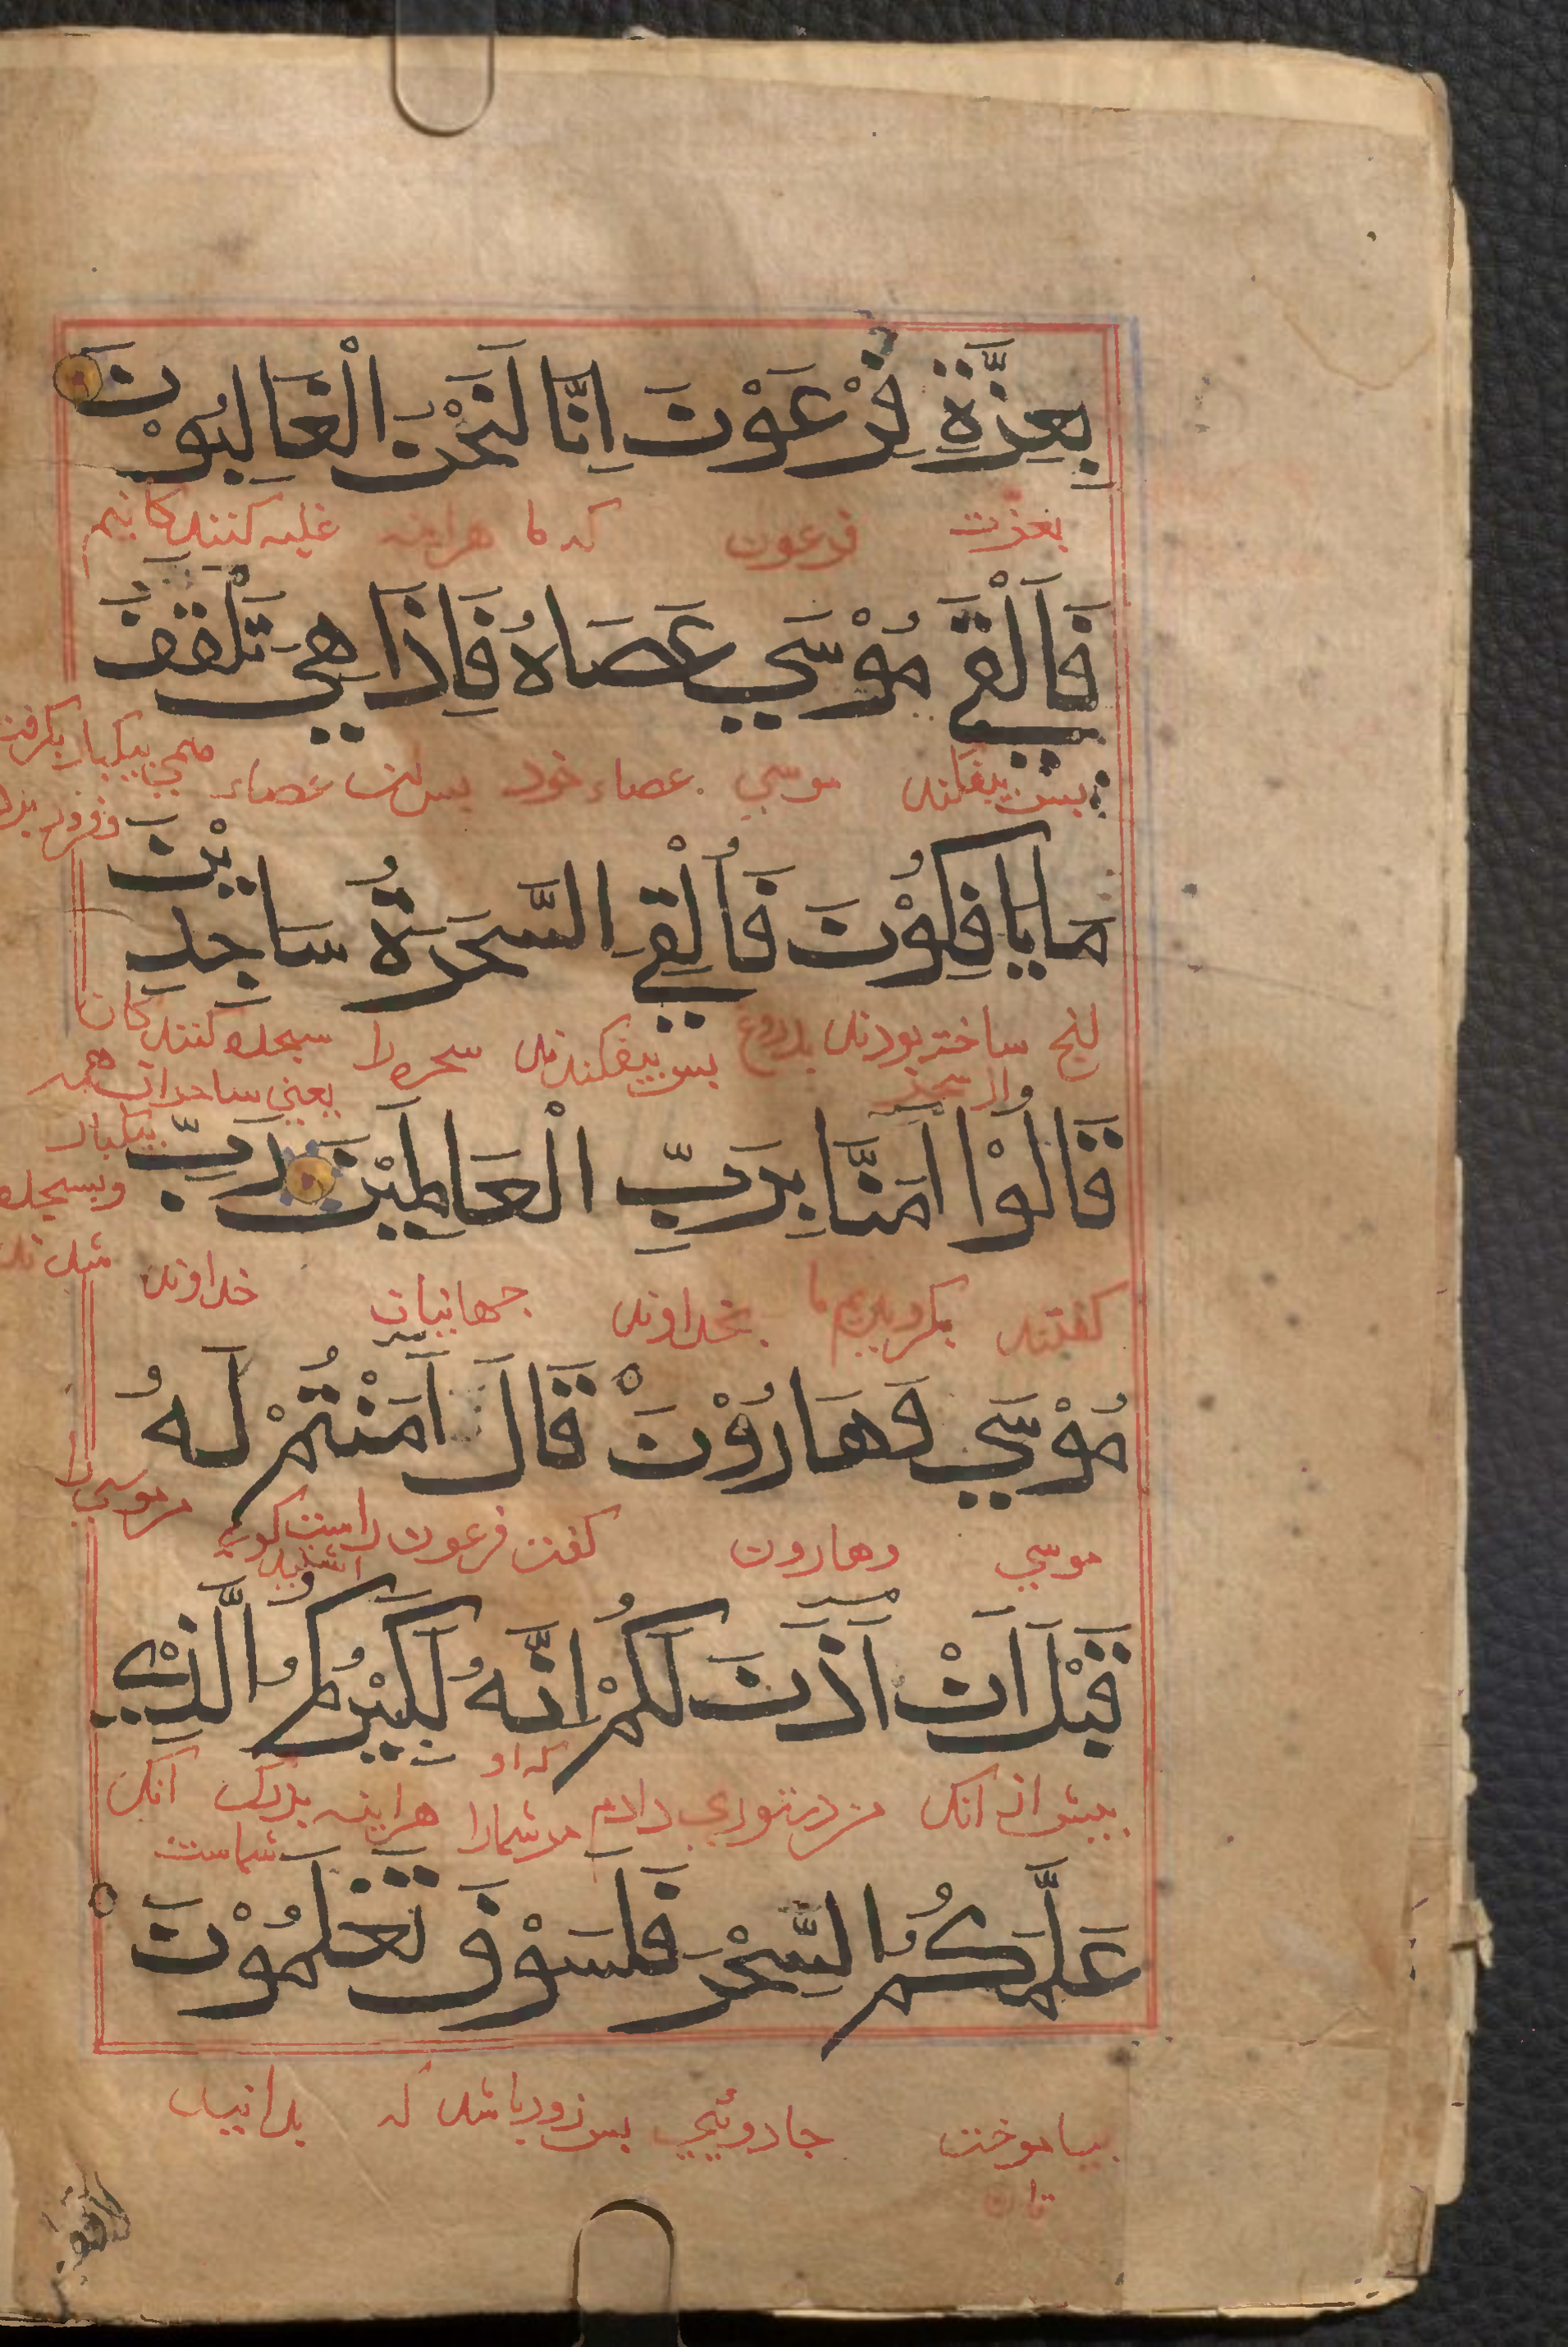 بِعِزَّةِ فِرْعَوْنَ اِنَّا لَنَحْنُ الْغَالِبُوْنَ
بعزّت فرعون که ما هراینه غلبه کنندکانیم
فَاَلْقَي مُوْسَي عَصَاهُ فَاِذَا هِيَ تَلْقَفُ
بس بیفکند موسي عصاء خود بس ان عصاء همي بیکبار بکرفت
مَا يَافِكُوْنَ فَاُلْقِيَ السَّحَرَةُ سَاجِدِيْنَ
انج ساخته بودند بدروغ بس بیفکندند سحره را سجده کنندکان
یعني ساحران همه
بیکبار
وبسجده
شدند
قَالُوْا اٰمَنَّا بِرَبِّ الْعَالَمِيْنَ رَبِّ
کفتند بکرویدیم ما بخداوند جهانیان خداوند
مُوْسَي وَهَارُوْنَ قَالَ اٰمَنْتُمْ لَهُ
موسي وهارون کفت فرعون راست کوي مر موسي را
قَبْلَ اَنْ اٰذَنَ لَكُمْ اِنَّهُ لَكَبِيْرُكُمُ الَّذِيْ
که او
بیش از انك من دستوري دادم مر شمارا هراینه بزرك انك
شماست
عَلَّمَكُمُ السِّحْرَ فَلَسَوْفَ تَعْلَمُوْنَ
بیاموخت جادوئیي بس زود باشد که بدانید
تان